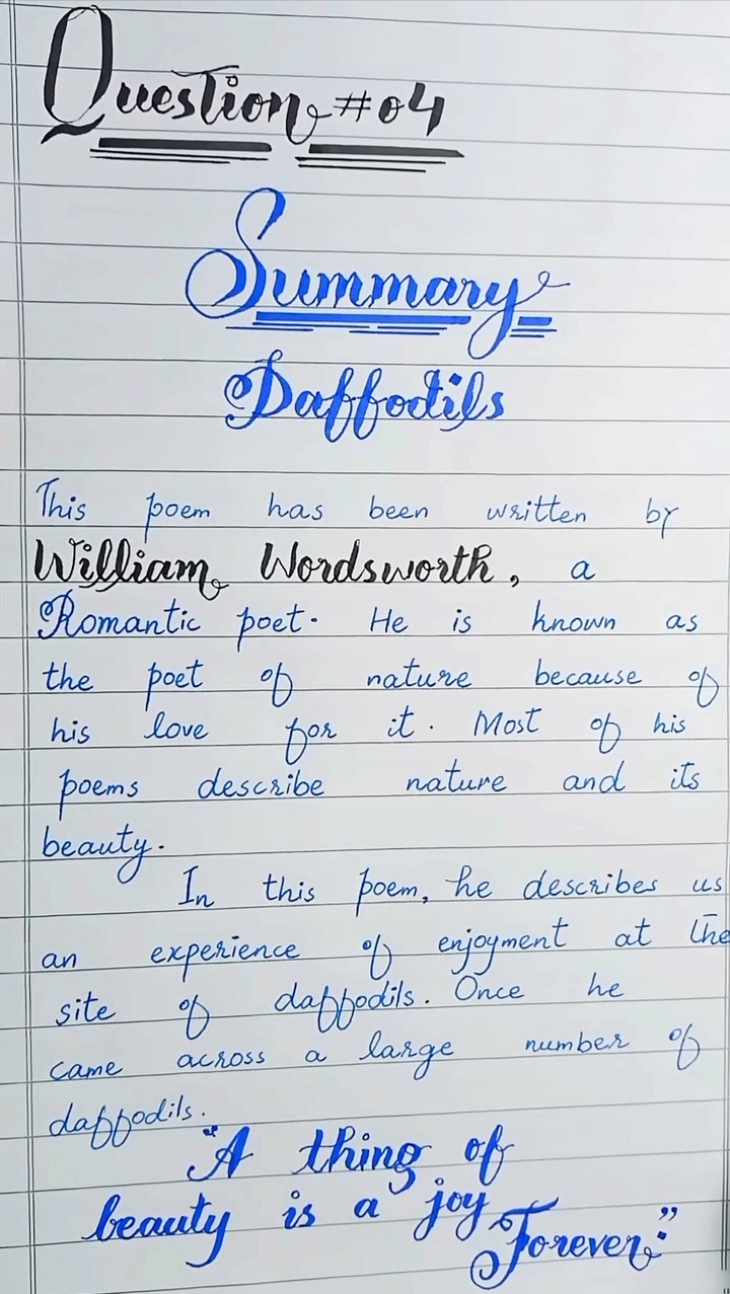 Question #04
Summary
Daffodils
This poem has been written by
William Wordsworth, a
Romantic poet. He is known as
the poet of nature because of
his love for it. Most of his
poems describe nature and its
beauty.
In this poem, he describes us
an experience of enjoyment at the
site of daffodils. Once he
came across a large number of
daffodils.
"A thing of
beauty is a joy
Forever."